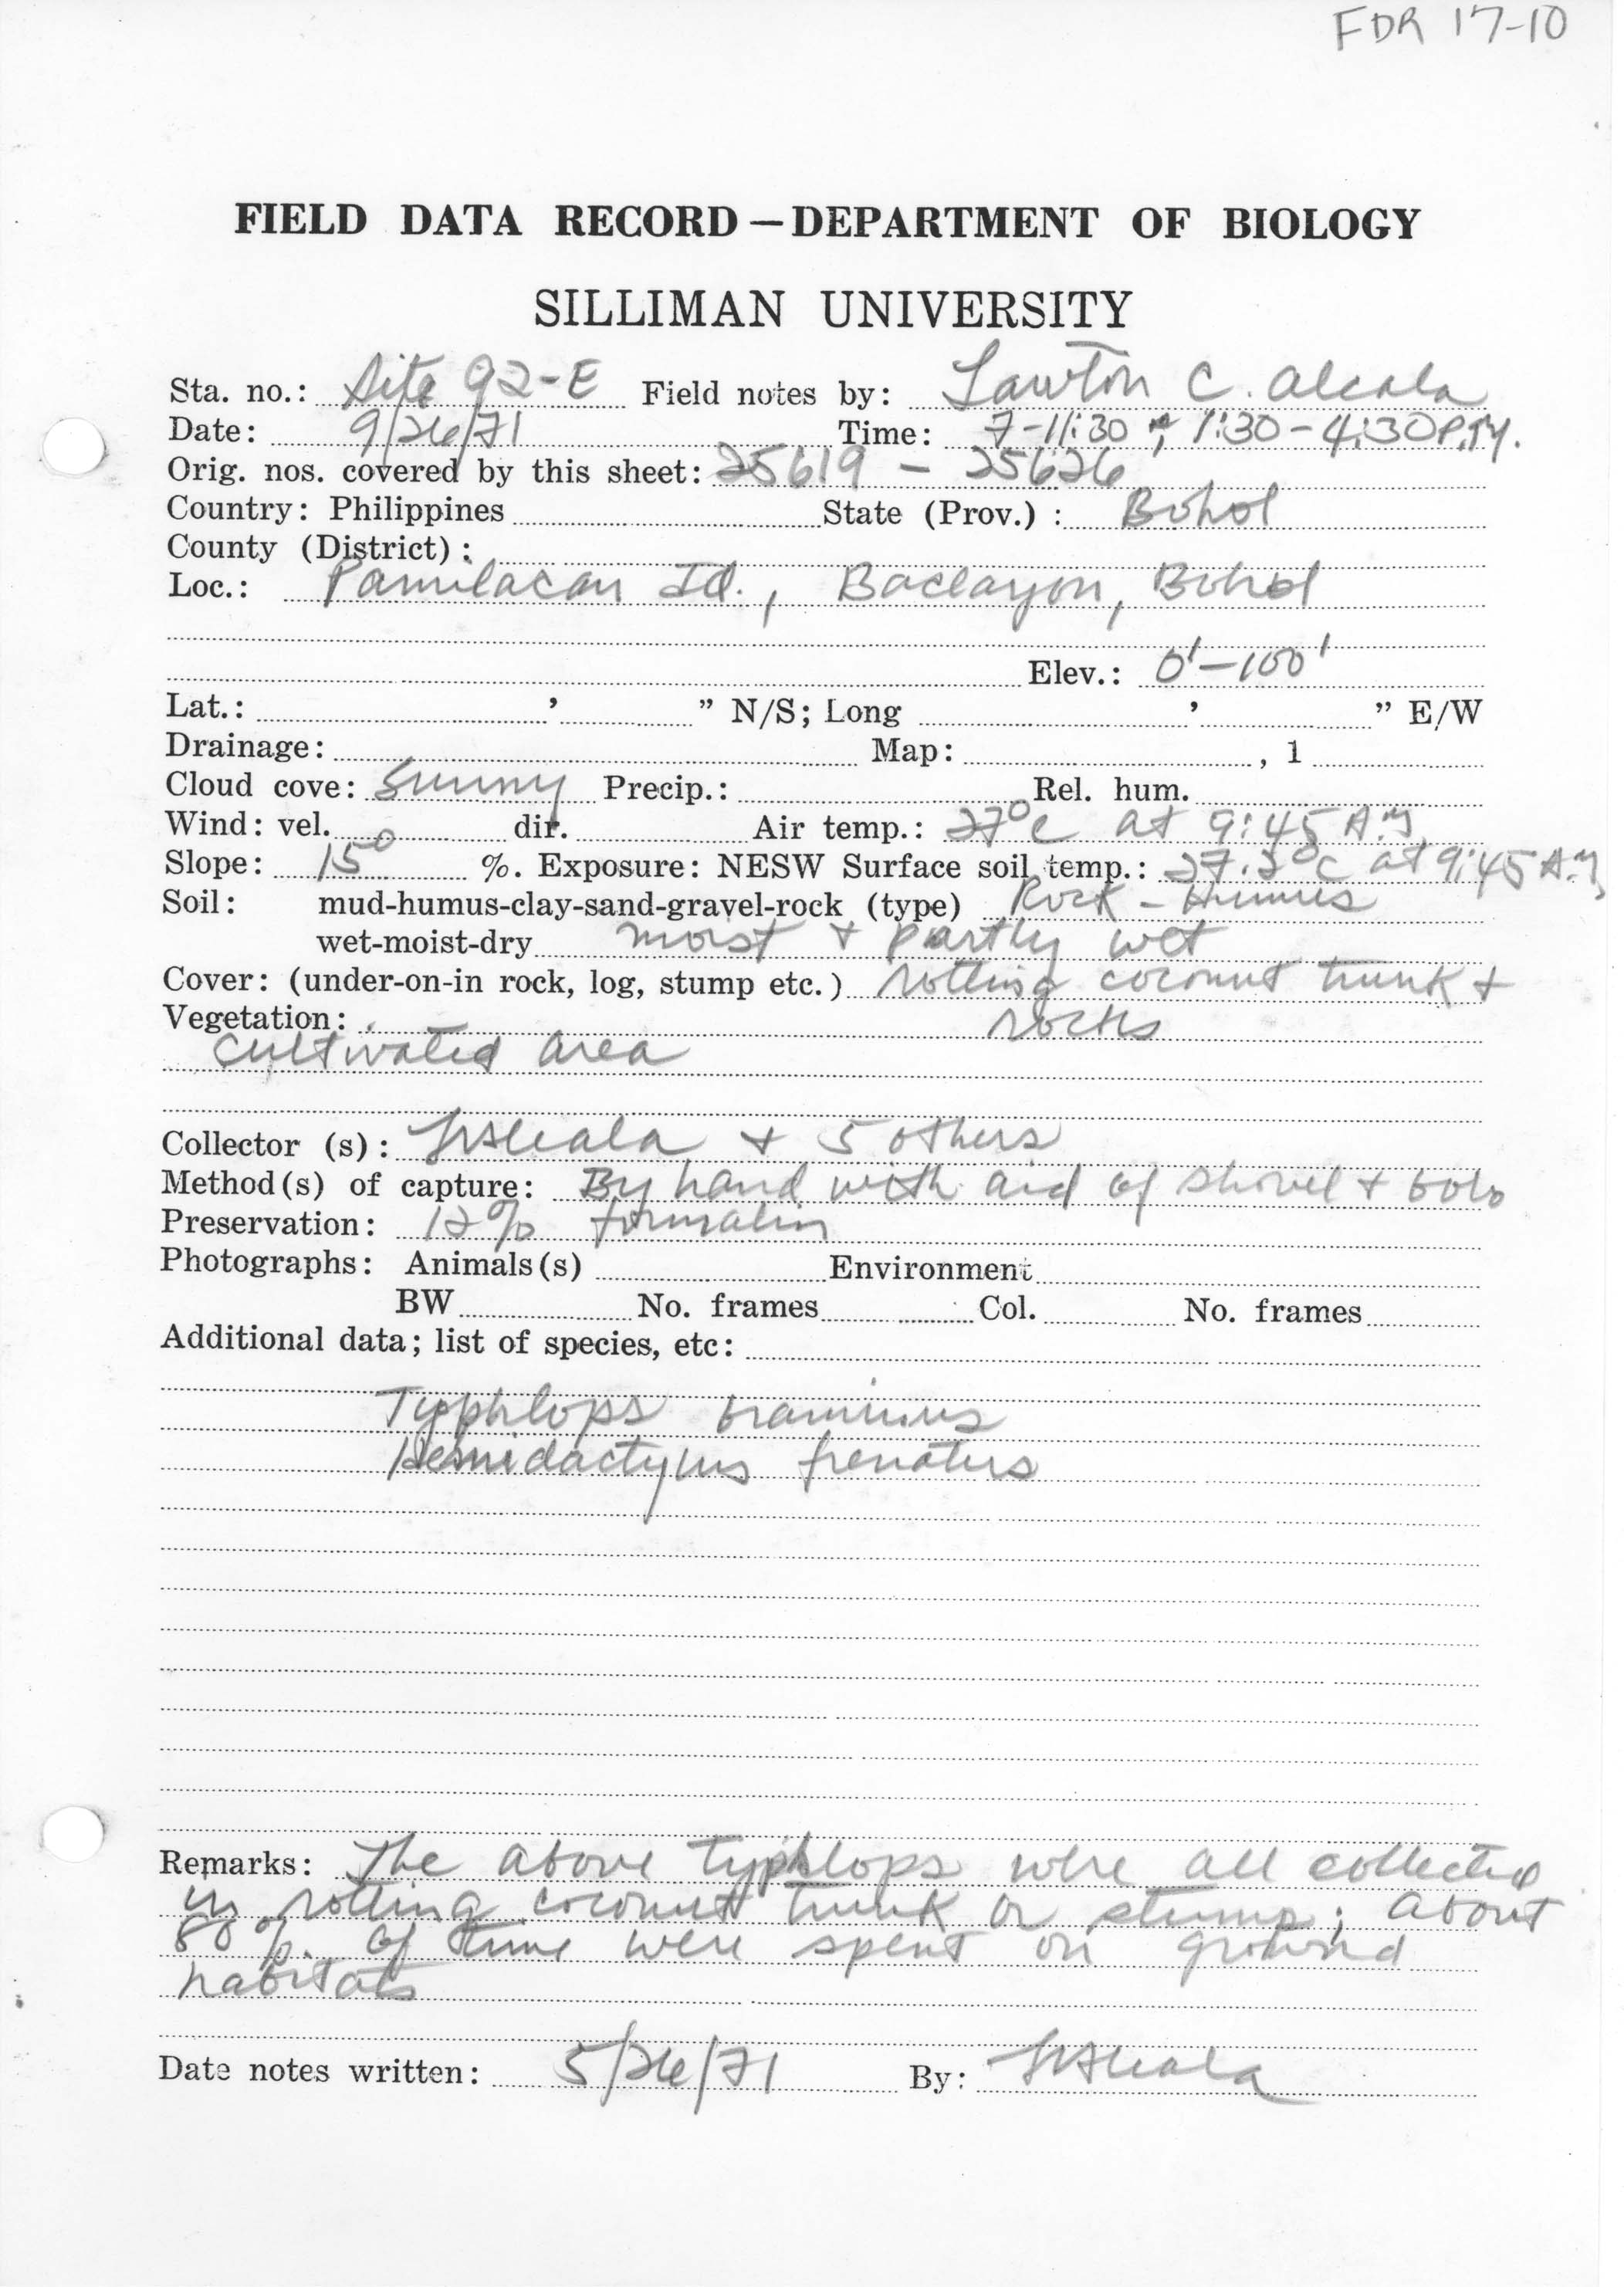 FDR 17-10
FIELD DATA RECORD — DEPARTMENT OF BIOLOGY
SILLIMAN UNIVERSITY
Sta. no.: Site 92-E Field notes by: Lawton C. Alcala
Date: 9/26/71 Time: 7-11:30 & 1:30-4:30 P.M.
Orig. nos. covered by this sheet: 25619 - 25626
Country: Philippines State (Prov.) : Bohol
County (District) :
Loc.: Pamilacan Id., Baclayon, Bohol
Elev.: 0'-100'
Lat.: ' " N/S; Long ' " E/W
Drainage: Map: , 1
Cloud cove: Sunny Precip.: Rel. hum.
Wind: vel. dir. Air temp.: 27°C at 9:45 A.M
Slope: 15° %. Exposure: NESW Surface soil temp.: 27.2°C at 9:45 A.M
Soil: mud-humus-clay-sand-gravel-rock (type) Rock - Humus
wet-moist-dry moist + partly wet
Cover: (under-on-in rock, log, stump etc.) rotting coconut trunk +
Vegetation: rocks
cultivated area
Collector (s) : LCAlcala + 5 others
Method(s) of capture: By hand with aid of shovel + bolo
Preservation: 12% formalin
Photographs: Animals(s) Environment
BW No. frames Col. No. frames
Additional data; list of species, etc:
Typhlops braminus
Hemidactylus frenatus
Remarks: The above typhlops were all collected
in rotting coconut trunk or stump; about
80%. of time were spent on ground
habitats
Date notes written: 5/26/71 By: LCAlcala